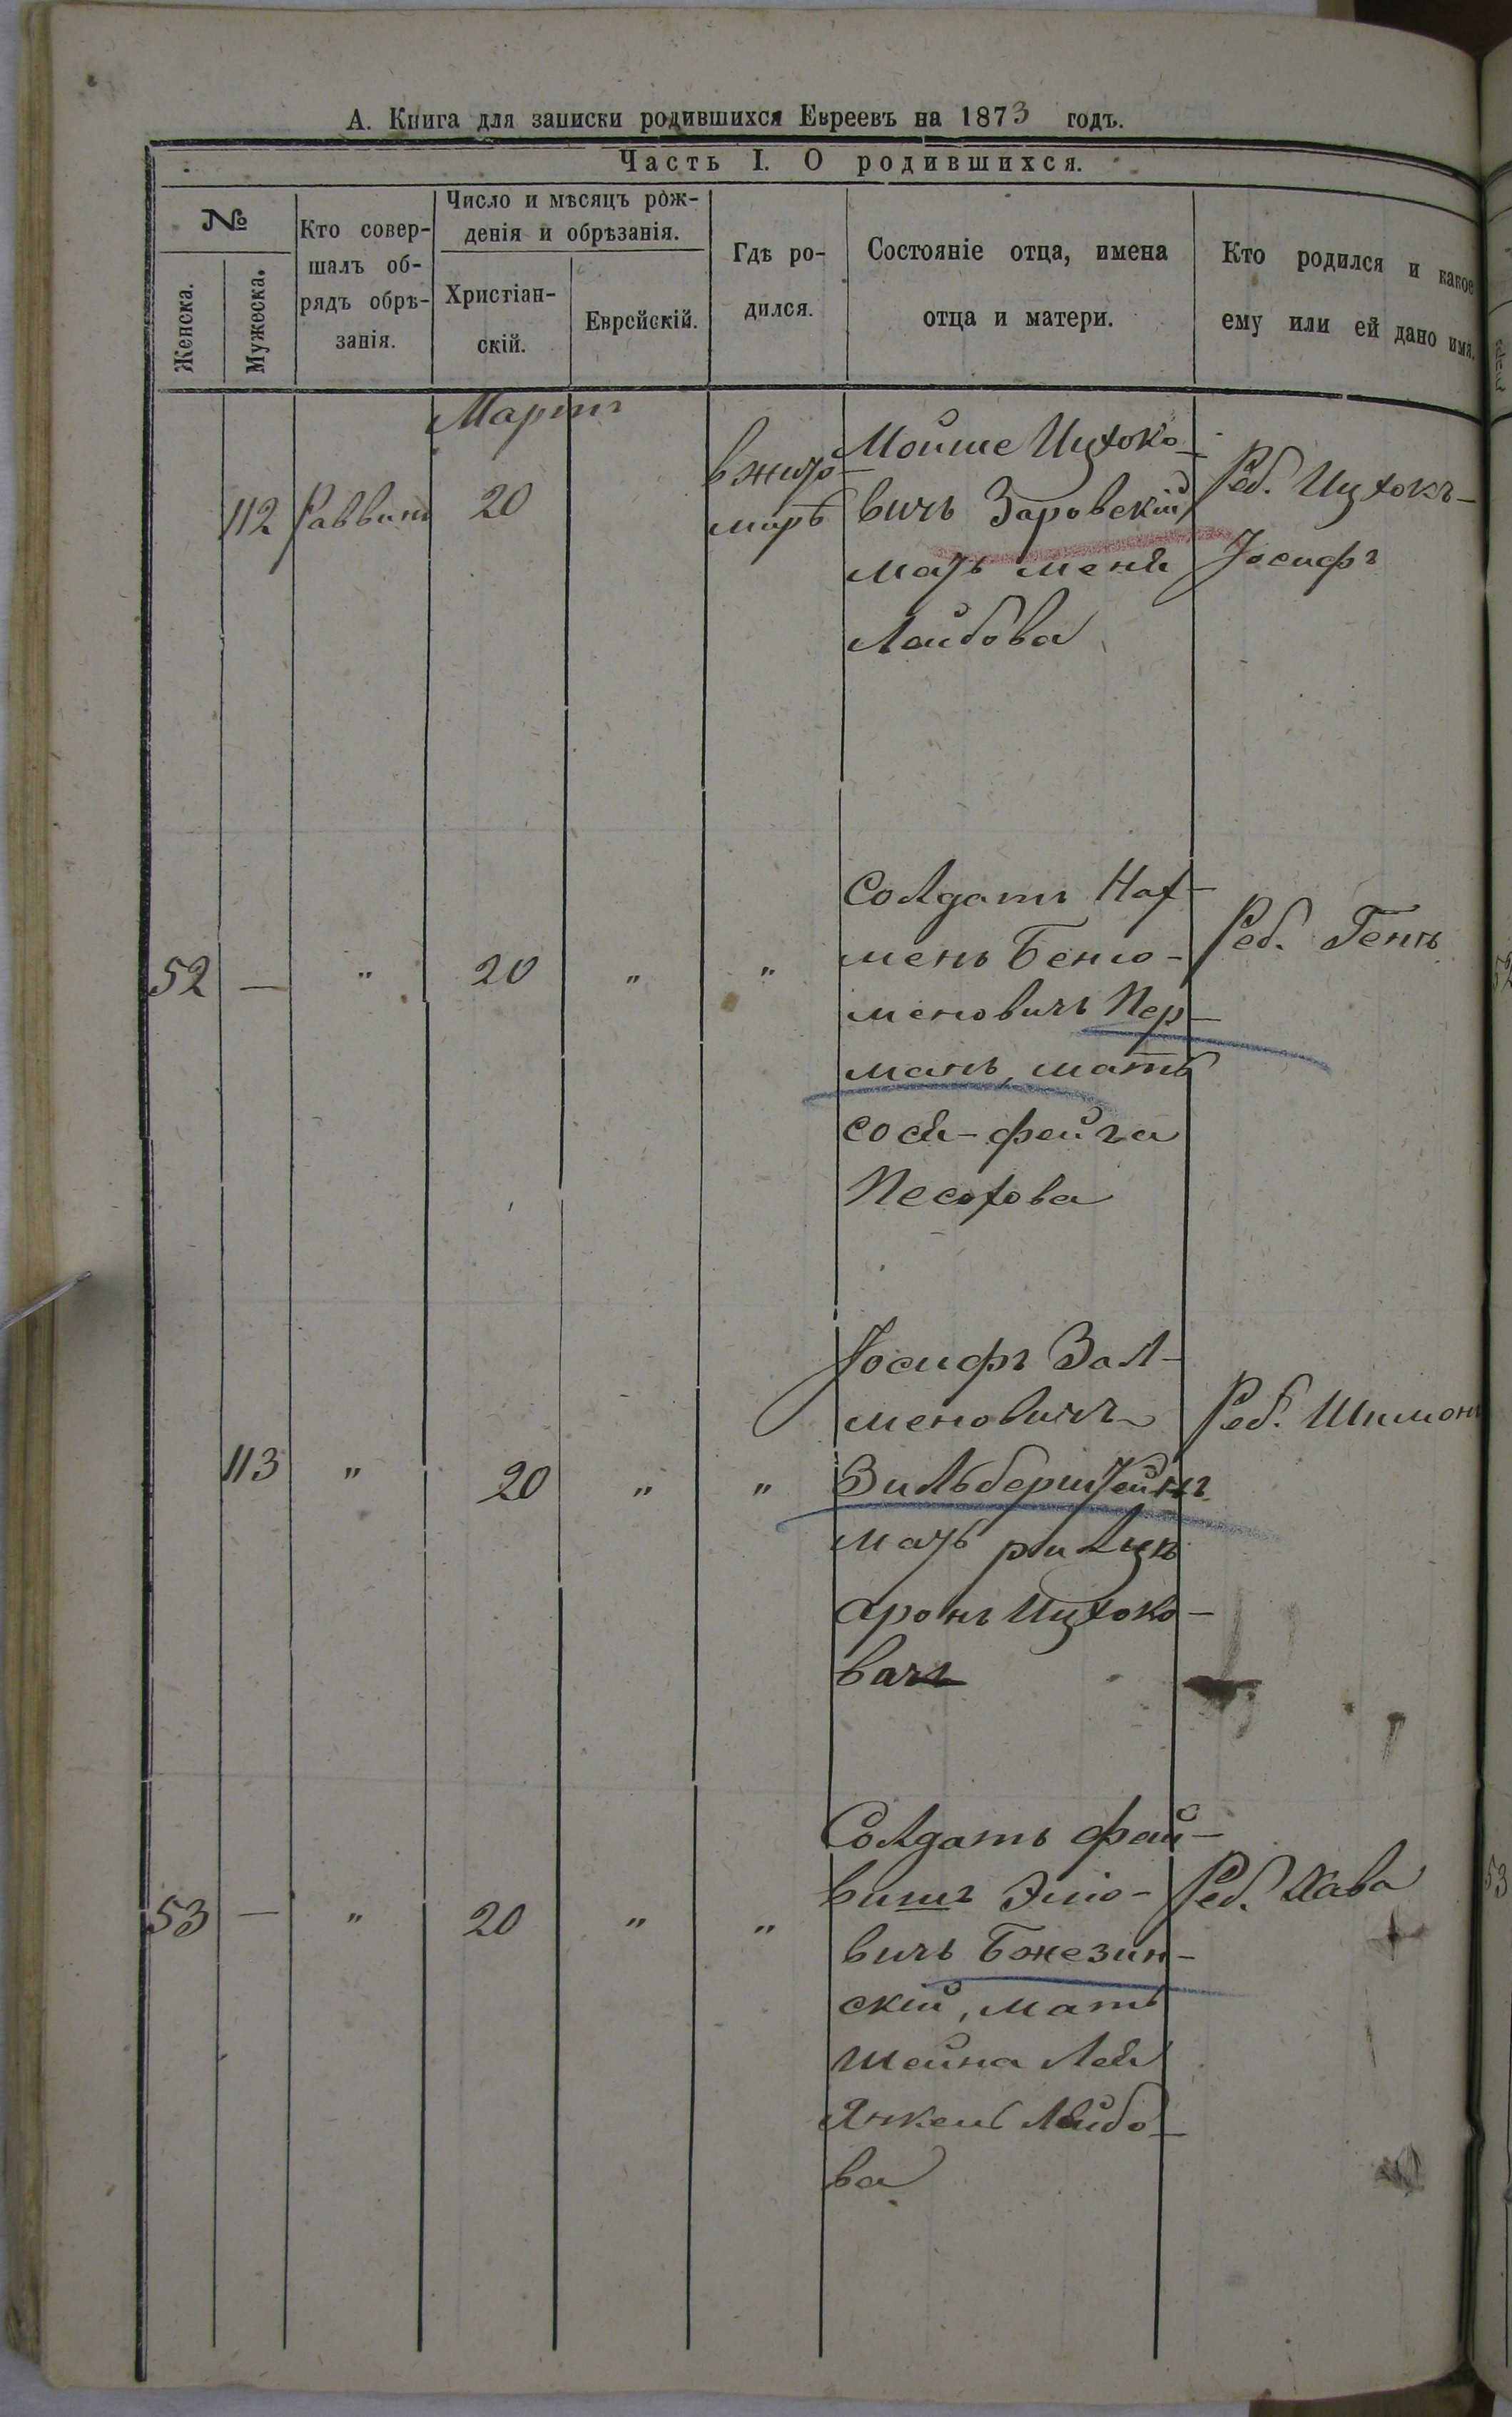 А. Книга для записки родившихся Евреевъ на 1873 годъ.
Часть I. О родившихся.
№
Женска.
Мужеска.
Кто совер-
шалъ об-
рядъ обрѣ-
занія.
Число и мѣсяцъ рож-
денія и обрѣзанія.
Христіан-
скій.
Еврейскій.
Гдѣ ро-
дился.
Состояніе отца, имена
отца и матери.
Кто родился и какое
ему или ей дано имя.
Мартъ
112 Раввинъ 20
в жито-
мирѣ
Мойше Ицхоко-
вичъ Заровскій
мать меня
Лейбова
Реб. Ицхокъ-
Іосифъ
52 — " 20 " "
Солдатъ Нах-
менъ Беню-
меновичъ Пер-
манъ, мать
сося-фейга
Песахова
Реб. Геня
113 " 20 " "
Іосифъ Зал-
меновичъ
Зильберштейнъ
мать
аронъ Ицхоко-
Реб. Шимонъ
53 — " 20 " "
Солдатъ фай-
вишъ Элio-
вичъ Бжезин-
скій, мать
Шейна Лея
Янкель Лейбо-
ва
Реб. Хава
52
53